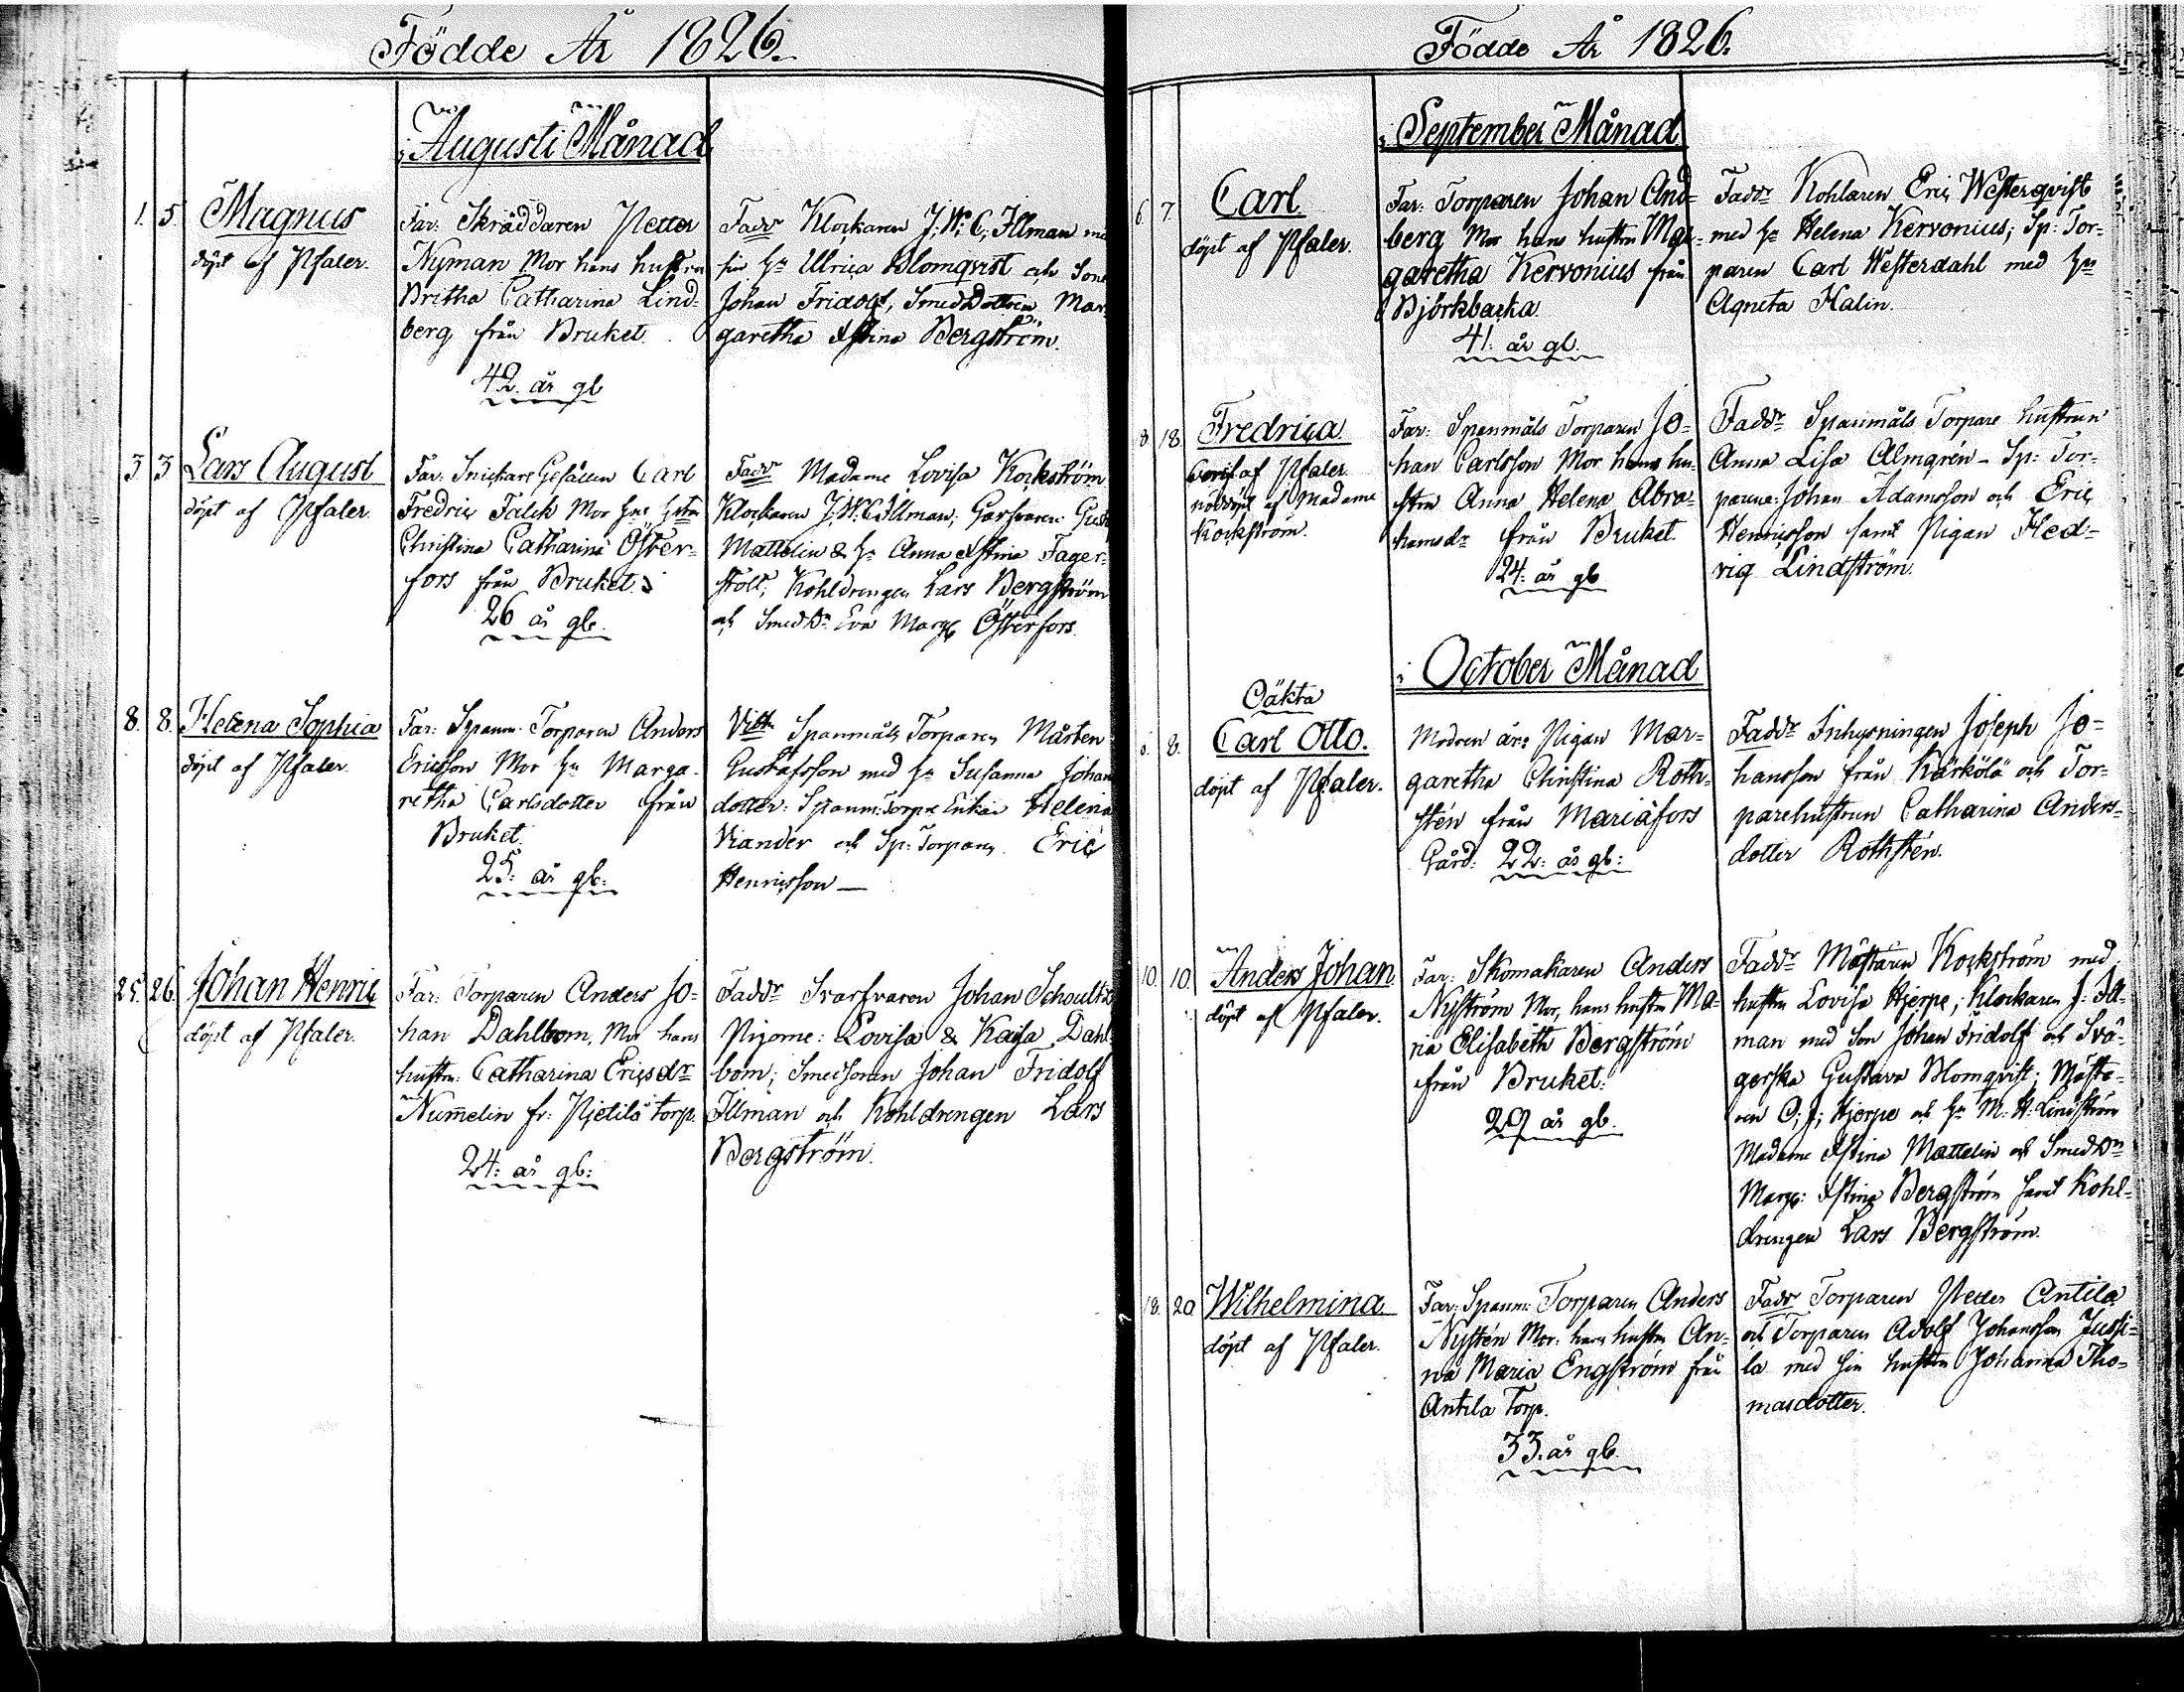 Födde År 1826.
i Augusti Månad
1. 5. Magnus
döpt af Pfaler.
Far: Skräddaren Petter
Nyman Mor hans hustru
Britha Catharina Lind-
berg från Bruket.
42. år gl
Faddr Klockaren J: W: C: Illman
sin hu Ulrica Blomqvist och Son
Johan Fridolf, Smeddottren Mar-
garetha Stina Bergström.
3 3 Lars August
döpt af Pfaler.
Far: Snickare Gesällen Carl
Fredric Falck Mor hans
Christina Catharina Öster-
fors från Bruket.
26 år gl.
Faddr Madame Lovisa Kockström
Klockaren J. W. C Illman, Garfvaren
Mattelin & hu Anna Stina Fager-
Kohldrengen Lars Bergström
och Smed Dr Eva Marg Österfors.
8. 8. Helena Sophia
döpt af Pfaler.
Far: Spanm. Torparen Anders
Ericsson Mor hu Marga-
retha Carlsdotter från
Bruket.
25: år gl:
Spanmåls Torparen Mårten
Gustafsson med hu Susanna Johan
dotter: Spanm: Torpre Enkan Helena
Viander och Sp: Torparen Eric
Henricsson
25. 26. Johan Henric
döpt af Pfaler.
Far: Torparen Anders Jo-
han Dahlbom, Mor hans
hustru: Catharina Ericsdr
Numelin fr: Pietilä torp.
24: år gl:
Faddr Svarfvaren Johan Schoultz
Pigorne: Lovisa & Kajsa Dahl
bom; Smedsonen Johan Fridolf
Illman och Kohldrengen Lars
Bergström.
Födde År 1826.
i September Månad
6 7. Carl.
döpt af Pfaler.
Far: Torparen Johan And-
berg Mor hans hustru Mar-
garetha Kervonius från
Björkbacka.
41: år gl.
Faddr Kohlaren Eric Westerqvist
med hu Helena Kervonius; Sp: Tor-
paren Carl Westerdahl med hu
Agneta Halin.
8 18. Fredrica
af Pfaler.
nöddöpt af Madame
Kockström.
Far: Spanmåls Torparen Jo-
han Carlsson Mor hans hu-
stru Anna Helena Abra-
hamsdr från Bruket.
24: år gl
Faddr Spanmåls Torpare hustrun
Anna Lisa Almgrén - Sp: Tor-
parena: Johan Adamsson och Eric
Henricsson samt Pigan Hed-
vig Lindström.
i October Månad
Oäkta
8. Carl Otto.
döpt af Pfaler.
Modren är: Pigan Mar-
garetha Christina Roth-
stén från Mariäfors
Gård: 22: år gl:
Faddr Inhysningen Joseph Jo-
hansson från Kärkölä och Tor-
parehustrun Catharina Anders-
dotter Rothstén.
10. 10. Anders Johan
döpt af Pfaler.
Far: Skomakaren Anders
Nyström Mor, hans hustru Ma-
ria Elisabeth Bergström
från Bruket:
29 år gl.
Faddr Mästaren Kockström med
hustru Lovisa Hjerpe; Klockaren J: Ill-
man med Son Johan Fridolf och Svä-
gerska Gustava Blomqvist; Mäst-
ren C: J: Hjerpe och hu M: H: Lindström
Madame Stina Mattelin och Smed Dr
Marg: Stina Bergström samt Kohl-
drengen Lars Bergström.
18. 20 Wilhelmina
döpt af Pfaler.
Far: Spanm: Torparen Anders
Nystén Mor: hans hustru An-
na Maria Engström från
Antila Torp.
33. år gl.
Faddr Torparen Peter Antila
och Torparen Adolf Johansson Jussi-
la med sin hustru Johanna Tho-
masdotter.